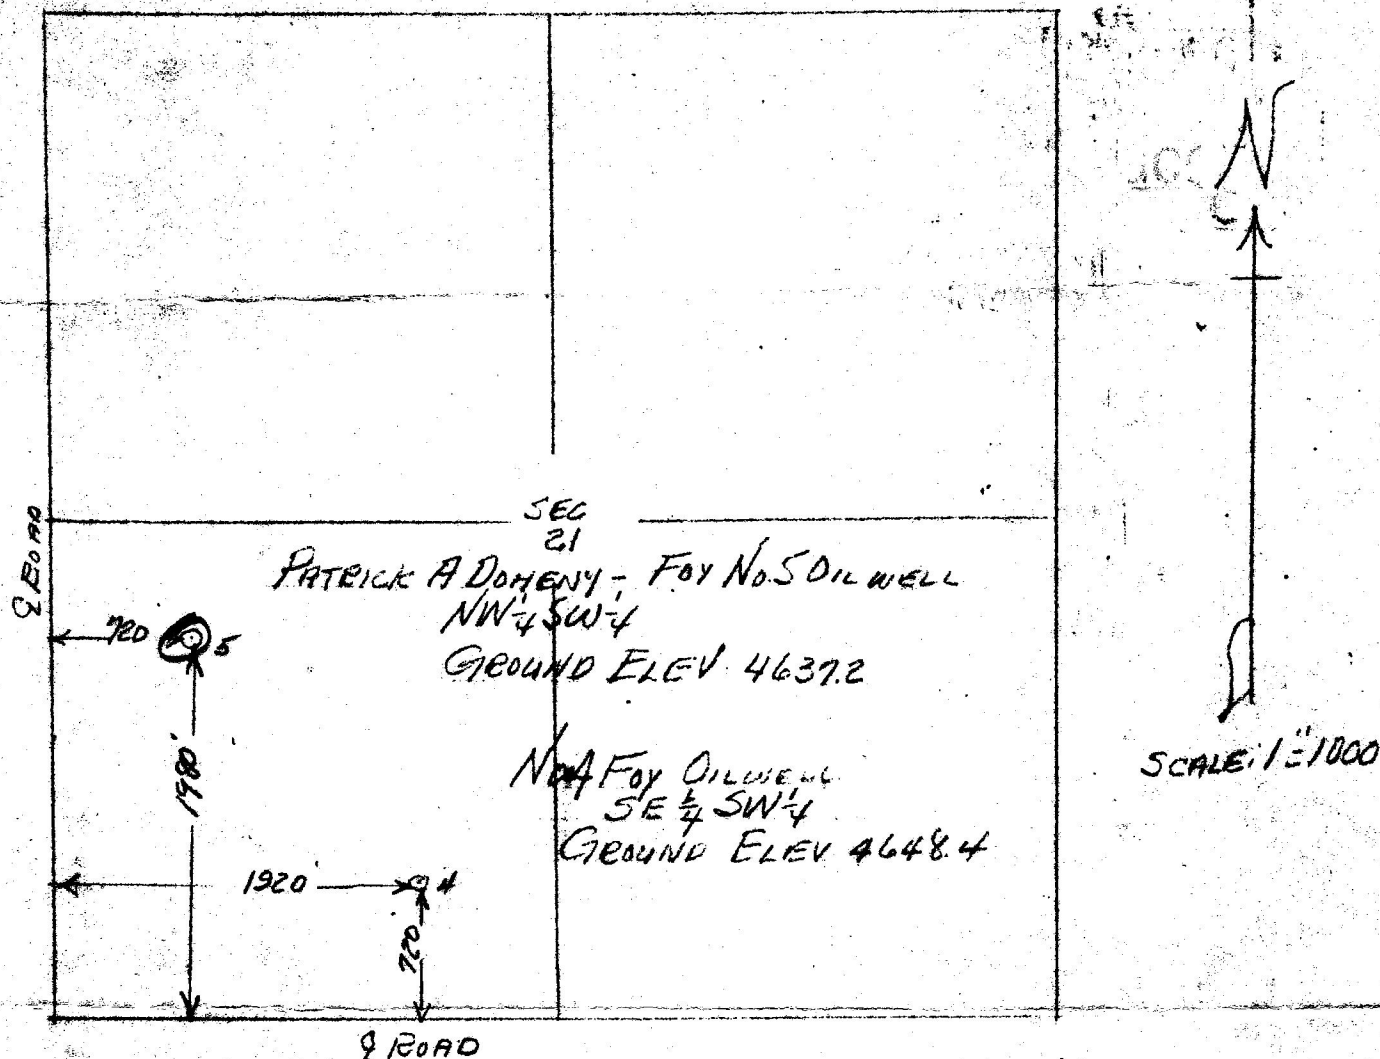 N
SEC
21
PATRICK A DOHENY - FOY No. 5 OIL WELL
NW 1/4 SW 1/4
GROUND ELEV 4637.2
℄ ROAD
720
5
1980'
No 4 FOY OILWELL
SE 1/4 SW 1/4
GROUND ELEV 4648.4
SCALE: 1"=1000
1920'
4
720
℄ ROAD